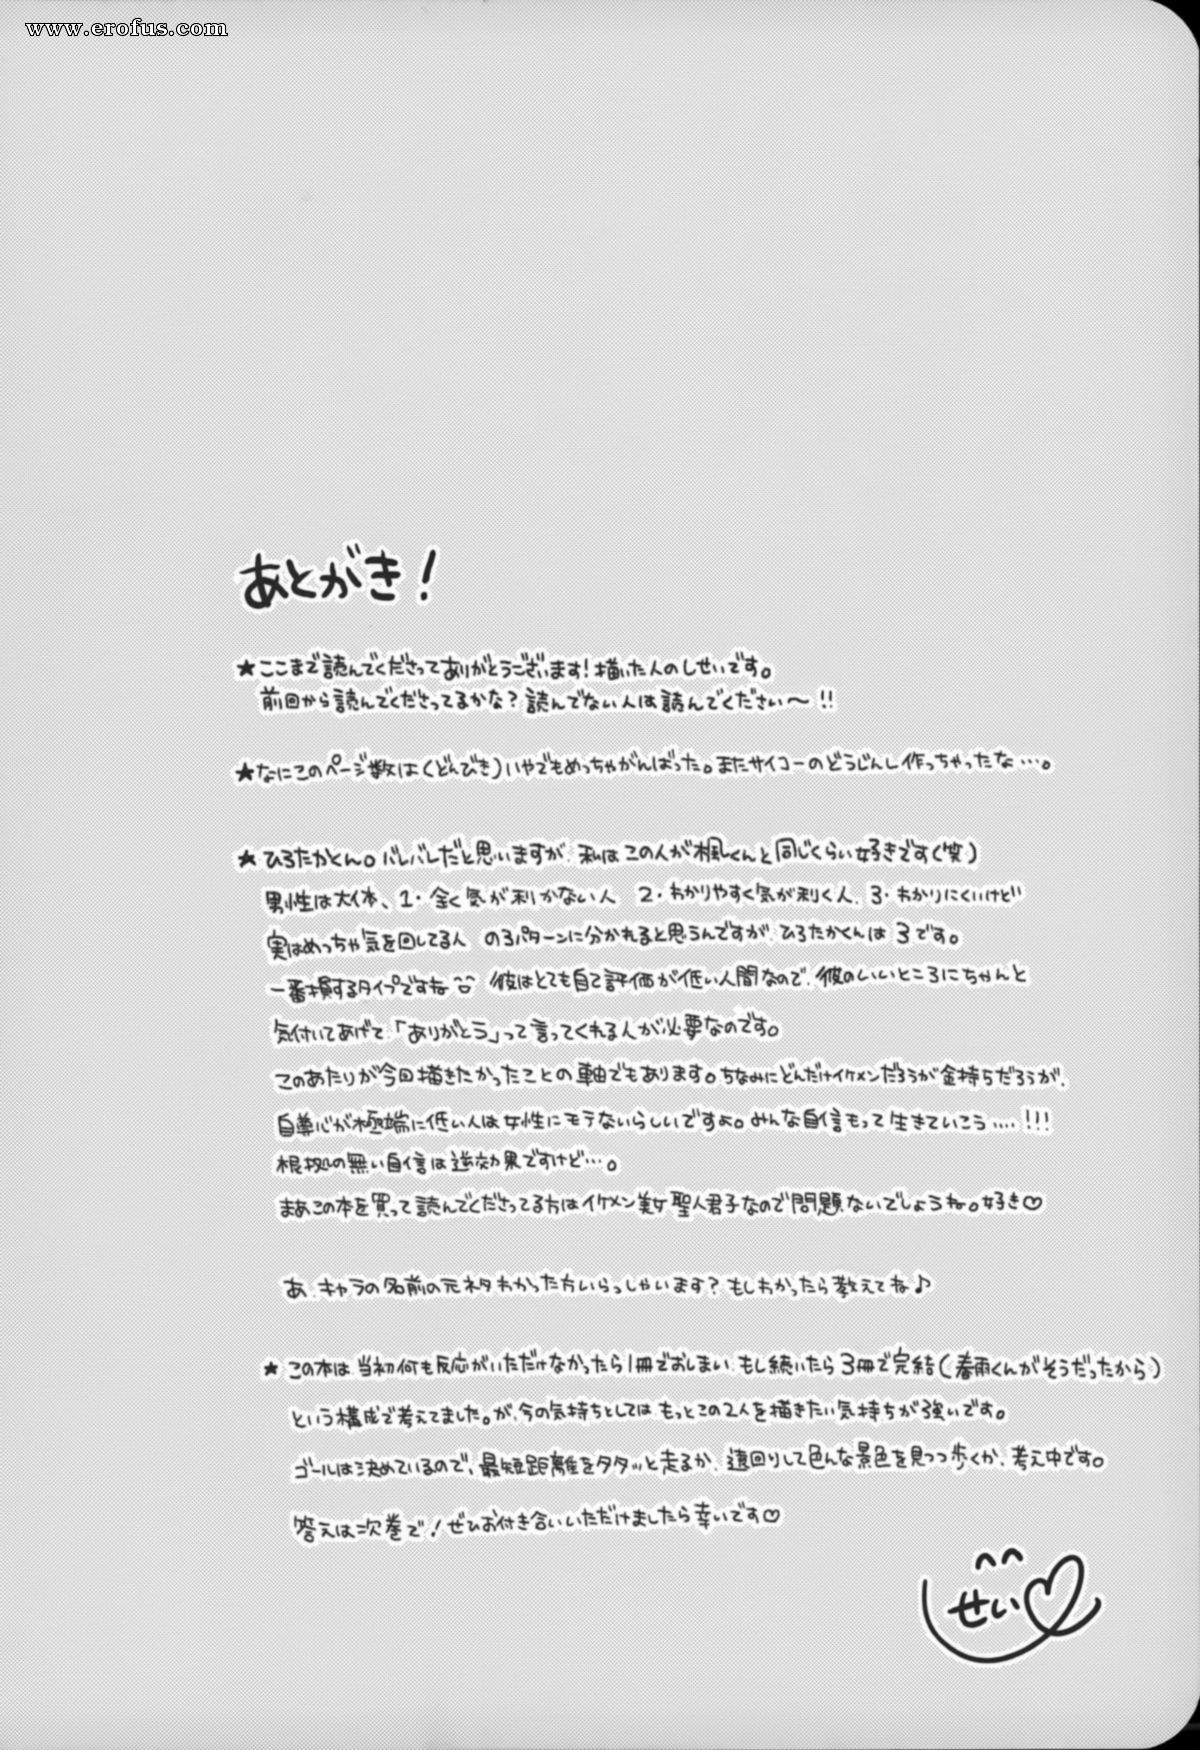 www.erofus.com
あとがき！
★ここまで読んでくださってありがとうございます！描いた人のしせいです。
前回から読んでくださってるかな？読んでない人は読んでください〜！！
★なにこのページ数は（どんびき）いやでもめっちゃがんばった。またサイコーのどうじんし作っちゃったな…。
★ひろたかくん。バレバレだと思いますが、私はこの人が楓くんと同じくらい好きです（笑）
男性は大体、1・全く気が利かない人 2・わかりやすく気が利く人、3・わかりにくいけど
実はめっちゃ気を回してる人 の3パターンに分かれると思うんですが、ひろたかくんは3です。
一番損するタイプですね 彼はとても自己評価が低い人間なので、彼のいいところにちゃんと
気付いてあげて、「ありがとう」って言ってくれる人が必要なのです。
このあたりが今回描きたかったことの軸でもあります。ちなみにどんだけイケメンだろうが金持ちだろうが、
自尊心が極端に低い人は女性にモテないらしいですよ。みんな自信もって生きていこう……！！！
根拠の無い自信は逆効果ですけど…。
まあこの本を買って読んでくださってる方はイケメン美女聖人君子なので問題ないでしょうね。好き♡
あ、キャラの名前の元ネタわかった方いらっしゃいます？もしわかったら教えてね♪
★この本は、当初何も反応がいただけなかったら1冊でおしまい、もし続いたら3冊で完結（春雨くんがそうだったから）
という構成で考えてました。が、今の気持ちとしては、もっとこの2人を描きたい気持ちが強いです。
ゴールは決めているので、最短距離をタタッと走るか、遠回りして色んな景色を見つつ歩くか、考え中です。
答えは次巻で！ぜひお付き合いいただけましたら幸いです♡
せい♡